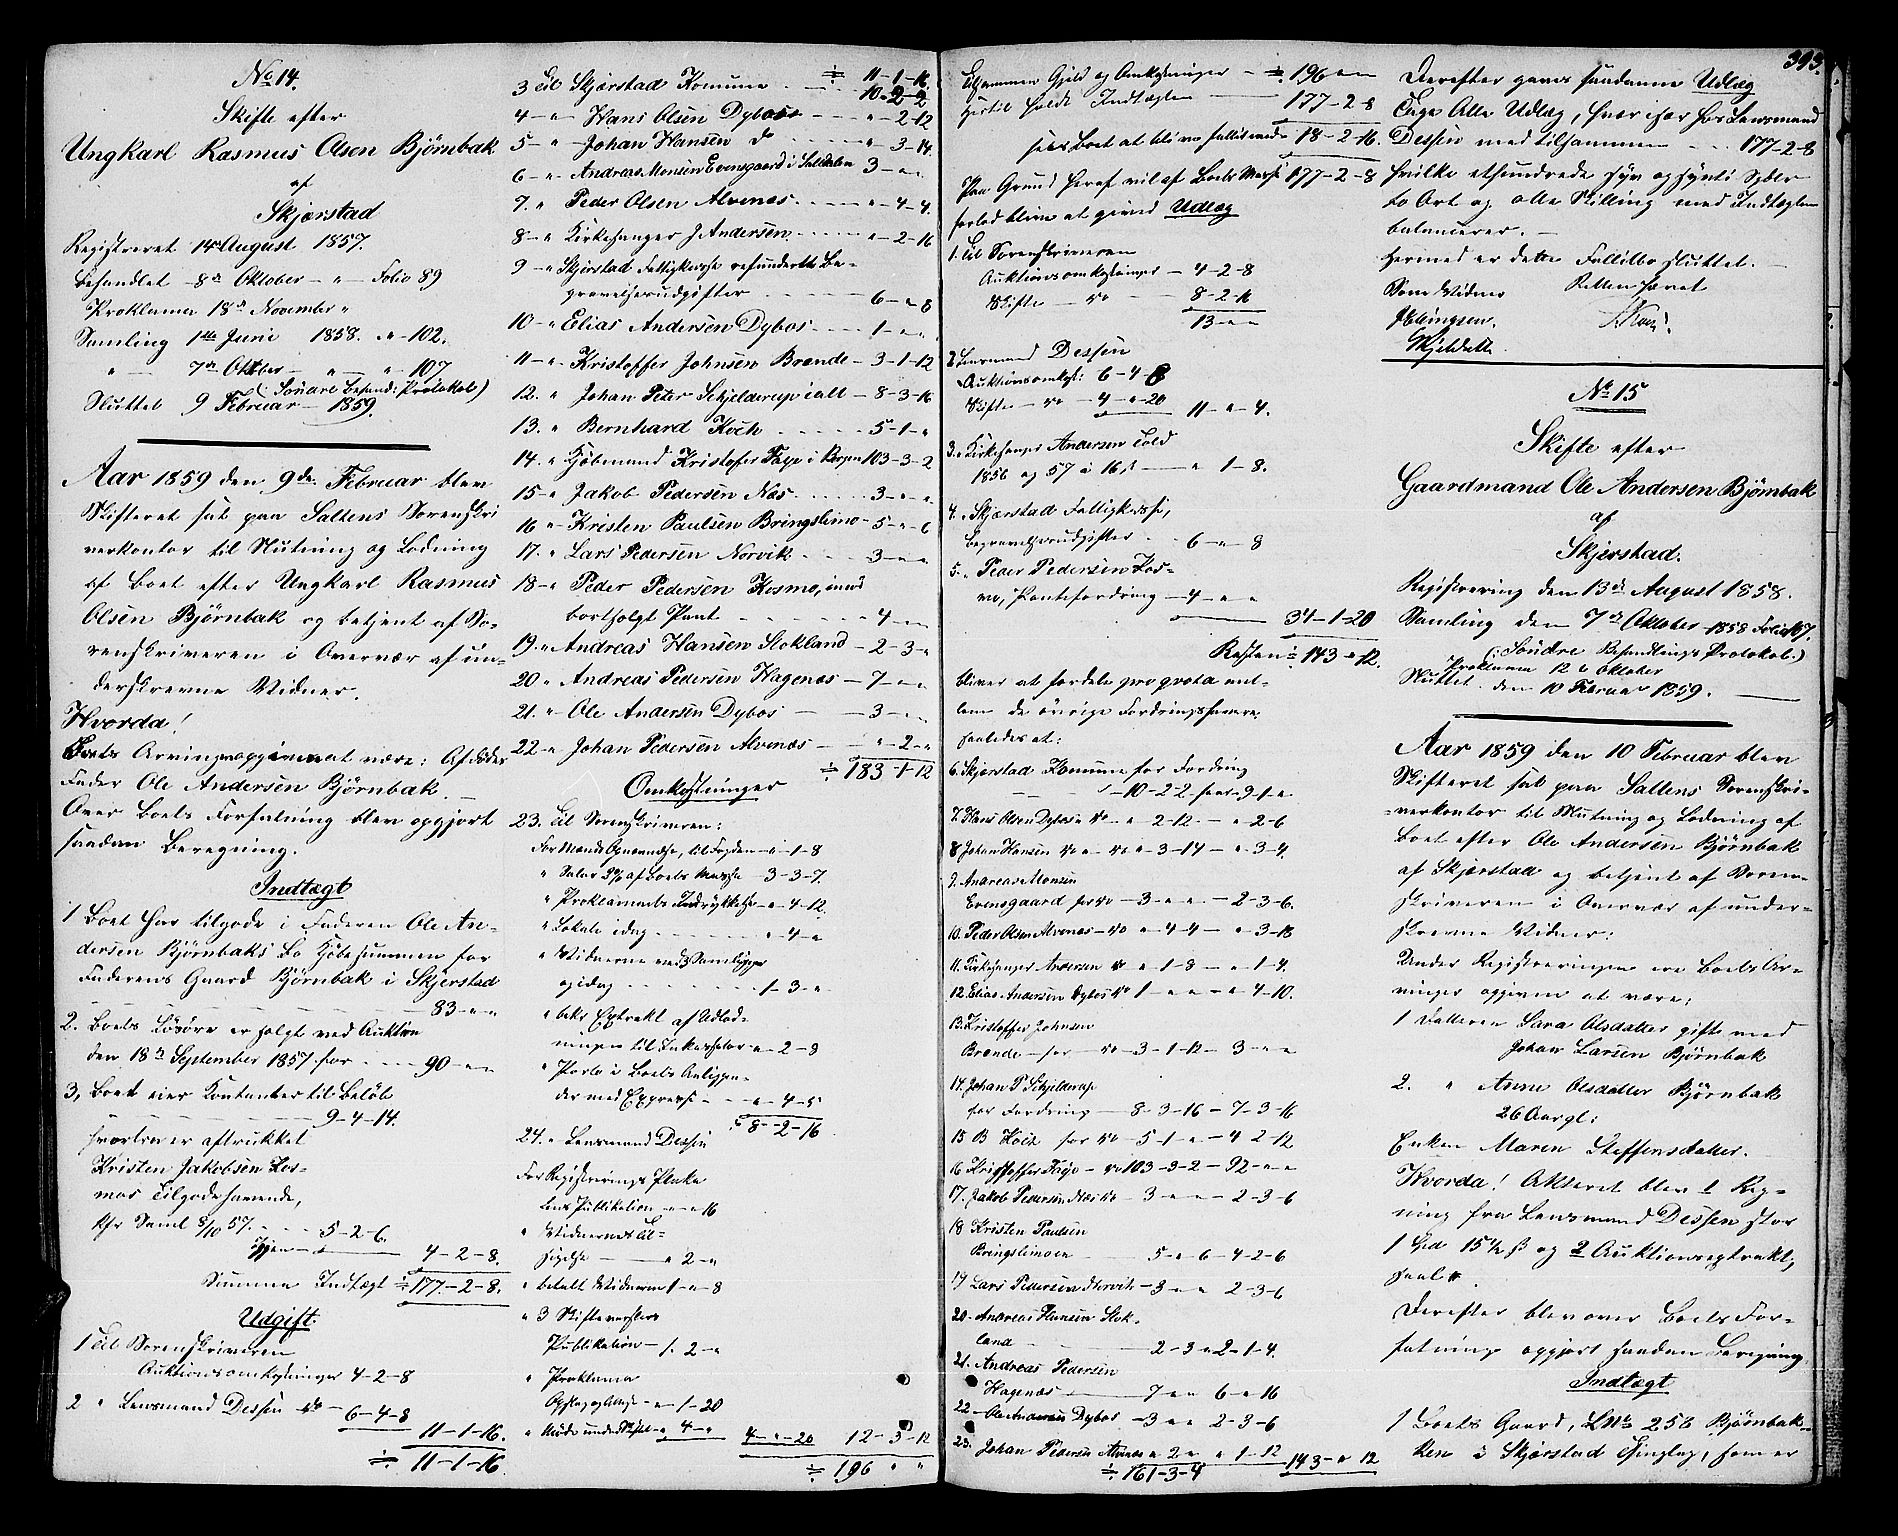 No 14.
Skifte efter
Ungkarl Rasmus Olsen Bjørnbak
af
Skjerstad
Registreret 14de August 1857.
Behandlet 8de Oktober - " - Folio 89
Proklama 18de November "
Samling 1ste Juni 1858. " - 102.
" - 7de Oktober - " - " - 107
(Søndre Behand: Protokol)
Sluttet 9 Februar - 1859.
Aar 1859 den 9de Februar blev
Skifteret sat paa Saltens Sorenskri
verkontor til Slutning og Lodning
af Boet efter Ungkarl Rasmus
Olsen Bjørnbak og betjent af So-
renskriveren i Overvær af un-
derskrevne Vidner.
Hvorda!
Boets Arving opgivet at være: Afdødes
Fader Ole Andersen Bjørnbak.
Over Boets Forfatning blev opgjort
saadan Beregning.
Indtægt
1 Boet har tilgode i Faderen Ole An-
dersen Bjørnbaks Bo Kjøbesummen for
Faderens Gaard Bjørnbak i Skjerstad
83 - " - "
2. Boets Løsøre er solgt ved Auktion
den 18de September 1857 for - 90 - " - "
3, Boet eier Kontanter til Beløb
9-4-14.
hvorfra er aftrukket
Kristen Jakobsen Kos-
mos Tilgodehavende,
Kfr Saml 8/10 57. - 5-2-6.
Igjen - 4-2-8.
Summa Indtægt ÷ 177-2-8.
Udgift.
1 Til Sorenskriveren
Auktionsomkostninger 4-2-8
2 " Lensmand Dessen do - 6-4-8
11-1-16.
÷ 11-1-16
÷ 11-1-16.
3 Til Skjerstad Komune - 10-2-2
4 - " - Hans Olsen Dybos - " - 2-12
5 - " - Johan Hansen do " 3-14.
6 - " - Andreas Monsen Evensgaard i Saltdalen 3 - " - "
7. " Peder Olsen Alvenes - " - 4-4.
8 - " Kirkesanger J Andersen - " - 2-16
9 - " Skjerstad Fattigkasse refunderte Be-
gravelsesudgifter - 6 - " - 8
10 - " Elias Andersen Dybos - 1 - " - "
11 - " - Kristoffer Johnsen Brende - 3-1-12
12. " Johan Peter Schjelderup ialt - 8-3-16
13. " Bernhard Koch - 5-1-"
14. " Kjøbmand Kristofer Faye i Bergen 103-3-2
15 - " Jakob Pedersen Næs - 3 - " - "
16 " - Kristen Paulsen Bringslimo - 5 - " - 6
17. " Lars Pedersen Norvik - 3 - " - "
18 - " Peder Pedersen Kosmo, imod
bortsolgt Pant - 4 - " - "
19. " Andreas Hansen Stokland - 2-3-"
20 " Andreas Pedersen Hagenæs - 7 - " - "
21. " - Ole Andersen Dybos - 3 - " - "
22 - " Johan Pedersen Alvenæs - " - 2 - "
÷ 183-1-12
Omkostninger
23. Til Sorenskriveren:
For Mænds Opnævnelse, til Fogden - " - 1-8
" Salær 2% af Boets Masse 3-3-7.
" Proklamaets Indrykkelse - " - 4-12.
" Lokale idag - " 4 - "
" Vidnerne ved Samlinger
og idag - 1-3-"
" bekr Extrakt af Udlod-
ningen til Inkassator - " - 2-8
" Porto i Boets Anliggen-
der med Expresse - " - 4-5
÷ 8-2-16
24. " Lensmand Dessen
For Registrerings Plaka
tens Publikation - " - " 16
" Vidnernes Til-
sigelse " 2 - "
" betalt Vidnerne 1 - " - 8
" 3 Skifteværslers
Publikation - 1. 2 - "
" Proklama
Opslag og Attest - " - 1-20
" Møde under Skiftet - " 4 - "
4 - " - 20 12-3-12
÷ 196 " "
Tilsammen Gjeld og Omkostninger - ÷ 196 " "
Hertil holdt Indtægten 177-2-8
sees Boet at blive fallit med 18-2-16.
Paa Grund heraf vil af Boets Masse 177-2-8
forlods blive at givne Udlæg
1. Til Sorenskriveren
Auktionsomkostninger - 4-2-8
Skifte - do - 8-2-16
13 - " - "
2 Lensmand Dessen
Auktionsomkost: 6-4-8
Skifte - do - 4 - " - 20
11 - " - 4.
3. Kirkesanger Andersen Told
1856 og 57 a 16 s - " 1-8.
4. Skjerstad Fattigkasse,
Begravelsesudgifter - 6 - " - 8
5. " Peder Pedersen Kos-
mo, Pantefordring - 4 - " "
34-1-20
Resten ÷ 143 - " - 12.
bliver at fordele pro quota mel-
lem de øvrige Fordringshavere,
saaledes at:
6. Skjerstad Komune for Fordring
10-2-2 faar - 9-1-"
7. Hans Olsen Dybos do " 2-12 - " 2-6
8 Johan Hansen do " - do " 3-14 - " 3-4.
9. Andreas Monsen
Evensgaard for do - 3 - " - " - 2-3-6.
10. Peder Olsen Alvenæs - do " 4-4 - " 3-18
11. Kirkesanger Andersen do " 1-8 - " 1-4.
12. Elias Andersen Dybos do 1 - " - " - " 4-10.
13. Kristoffer Johnsen
Brende - for - do - 3-1-12 - 3 - " - "
14. Johan P Schjelderup
for Fordring - 8-3-16 - 7-3-16
15 B Koch for do - 5-1-" - 4 2-12
16 Kristoffer Faye - do 103-3-2 - 92 - " - "
17. Jakob Pedersen Næs do - 3 - " - " - 2-3-6
18 Kristen Paulsen
Bringslimoen 5 - " 6 - 4-2-6
19 Lars Pedersen Norvik - 3 - " " 2-3-6
20. Andreas Hansen Stok-
land 2-3 " 2-1-4.
21. Andreas Pedersen
Hagenæs 7 " " 6 " 16
22 - Ole Andersen Dybos - 3 " " 2-3-6
23. Johan Pedersen Alvenæs " 2 " " 1-12
÷ 161-3-4 143 - " 12
393.
Derefter gaves saadanne Udlæg
Tage Alle Udlæg, hver især hos Lensmand
Dessen med tilsammen - 177-2-8
hvilke ethundrede syv og sytti Spdlr
to Ort og otte Skilling med Indtægten
balancerer. -
Hermed er dette Fallitbo sluttet. -
Som Vidner Retten hævet
J Ellingsen.
No 15
Skifte efter
Gaardmand Ole Andersen Bjørnbak
af
Skjerstad.
Registrering den 13de August 1858.
Samling den 7de Oktober 1858 Folio 107.
(: Søndre Behandlings Protokol:)
Proklama 12 Oktober
Sluttet den 10 Februar 1859.
Aar 1859 den 10 Februar blev
Skifteret sat paa Saltens Sorenskri-
verkontor til Slutning og Lodning af
Boet efter Ole Andersen Bjørnbak
af Skjerstad og betjent af Soren-
skriveren i Overvær af under-
skrevne Vidner:
Under Registreringen ere Boets Ar-
vinger opgivne at være:
1 Datteren Sara Olsdatter gift med
Johan Larsen Bjørnbak
2. " Anne Olsdatter Bjørnbak
26 Aar gl:
Enken Maren Steffensdatter.
Hvorda! Akteret blev 1 Reg-
ning fra Lensmand Dessen stor
1 Spd 15½ ß og 2 Auktionsextrakt,
Derefter blev over Boets For-
fatning opgjort saadan Beregning
Indtægt
1 Boets Gaard, LNo 256 Bjørnbak-
ken i Skjerstad Thinglag, som er